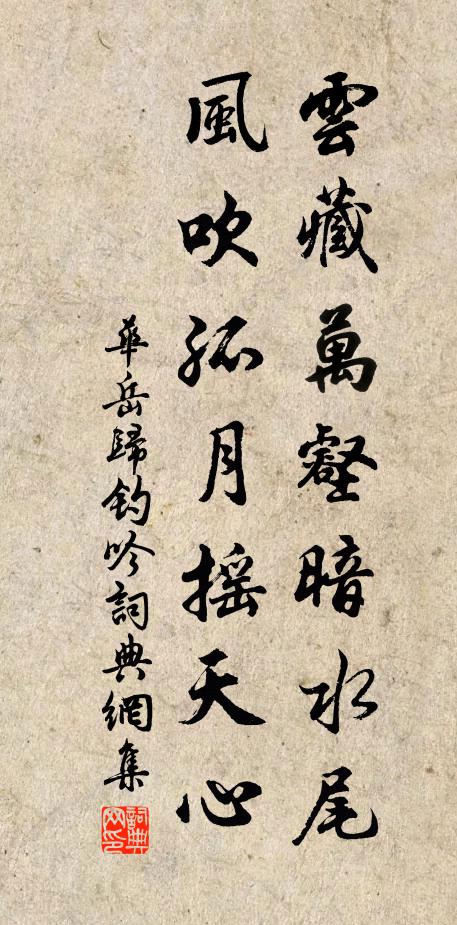 雲藏萬壑暗水尾
風吹孤月摇天心
華岳歸釣吟詞典網集
詞典網印